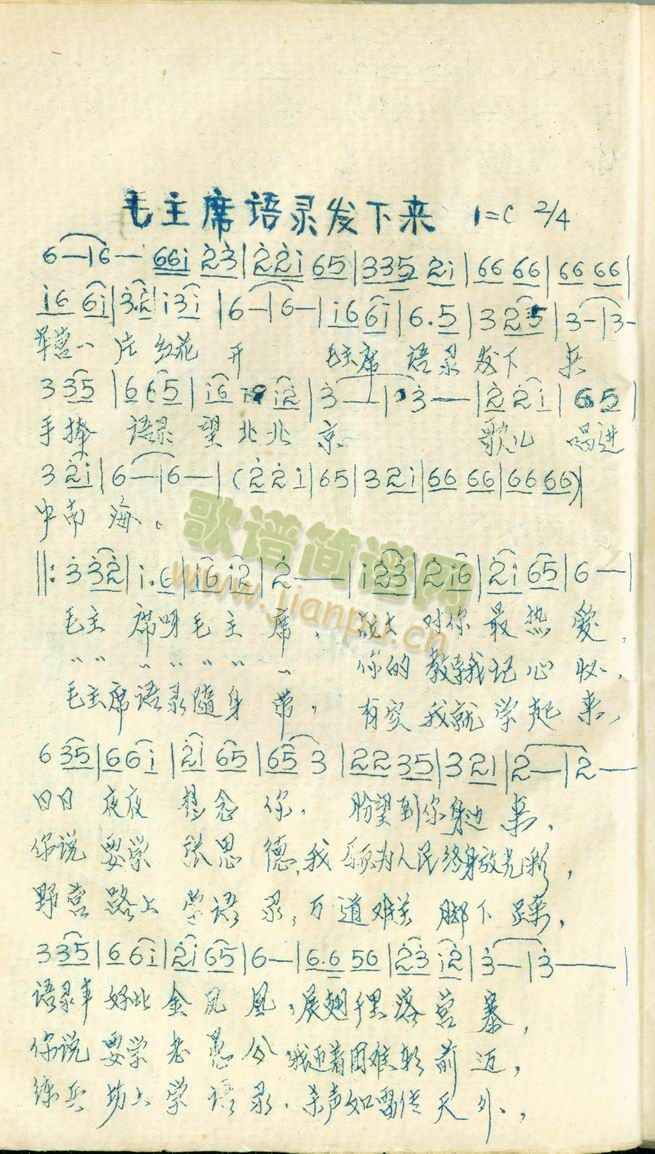 毛主席语录发下来 1=C 2/4
6—|6— 66i 23|22i 65|335 2i|66 66|66 66|
i6 6i|32 i3i|6—|6—|i6 6i|6.5|3 25|3—|3—
军营一片红花开 毛主席语录发下来
3 35|6 65|i6 i2|3—|3—|22i|65|
手捧语录望北京 歌儿唱进
3 2i|6—|6—|(22i|65|32i|66 66|66 66)|
中南海。
歌谱简谱网
www.jianpu.cn
||:3 32|i.6|i6 i2|2——|i33|2i6|2i 65|6—|
毛主席呀毛主席，对你最热爱，
〃〃〃〃〃〃 你的教导我记心怀，
毛主席语录随身带，有空我就学起来，
6 35|66i|2i 65|65 3|22 35|3 21|2—|2—
日日夜夜想念你，盼望到你身边来，
你说要学张思德，我为人民终身放光彩，
野营路上学语录，万道难关脚下踩，
3 35|66i|2i 65|6—|6.6 56|23 i2|3—|3——|
语录本好比金凤凰，展翅落营寨，
你说要学老愚公，我迎着困难朝前迈，
练兵场上学语录，杀声如雷传天外，